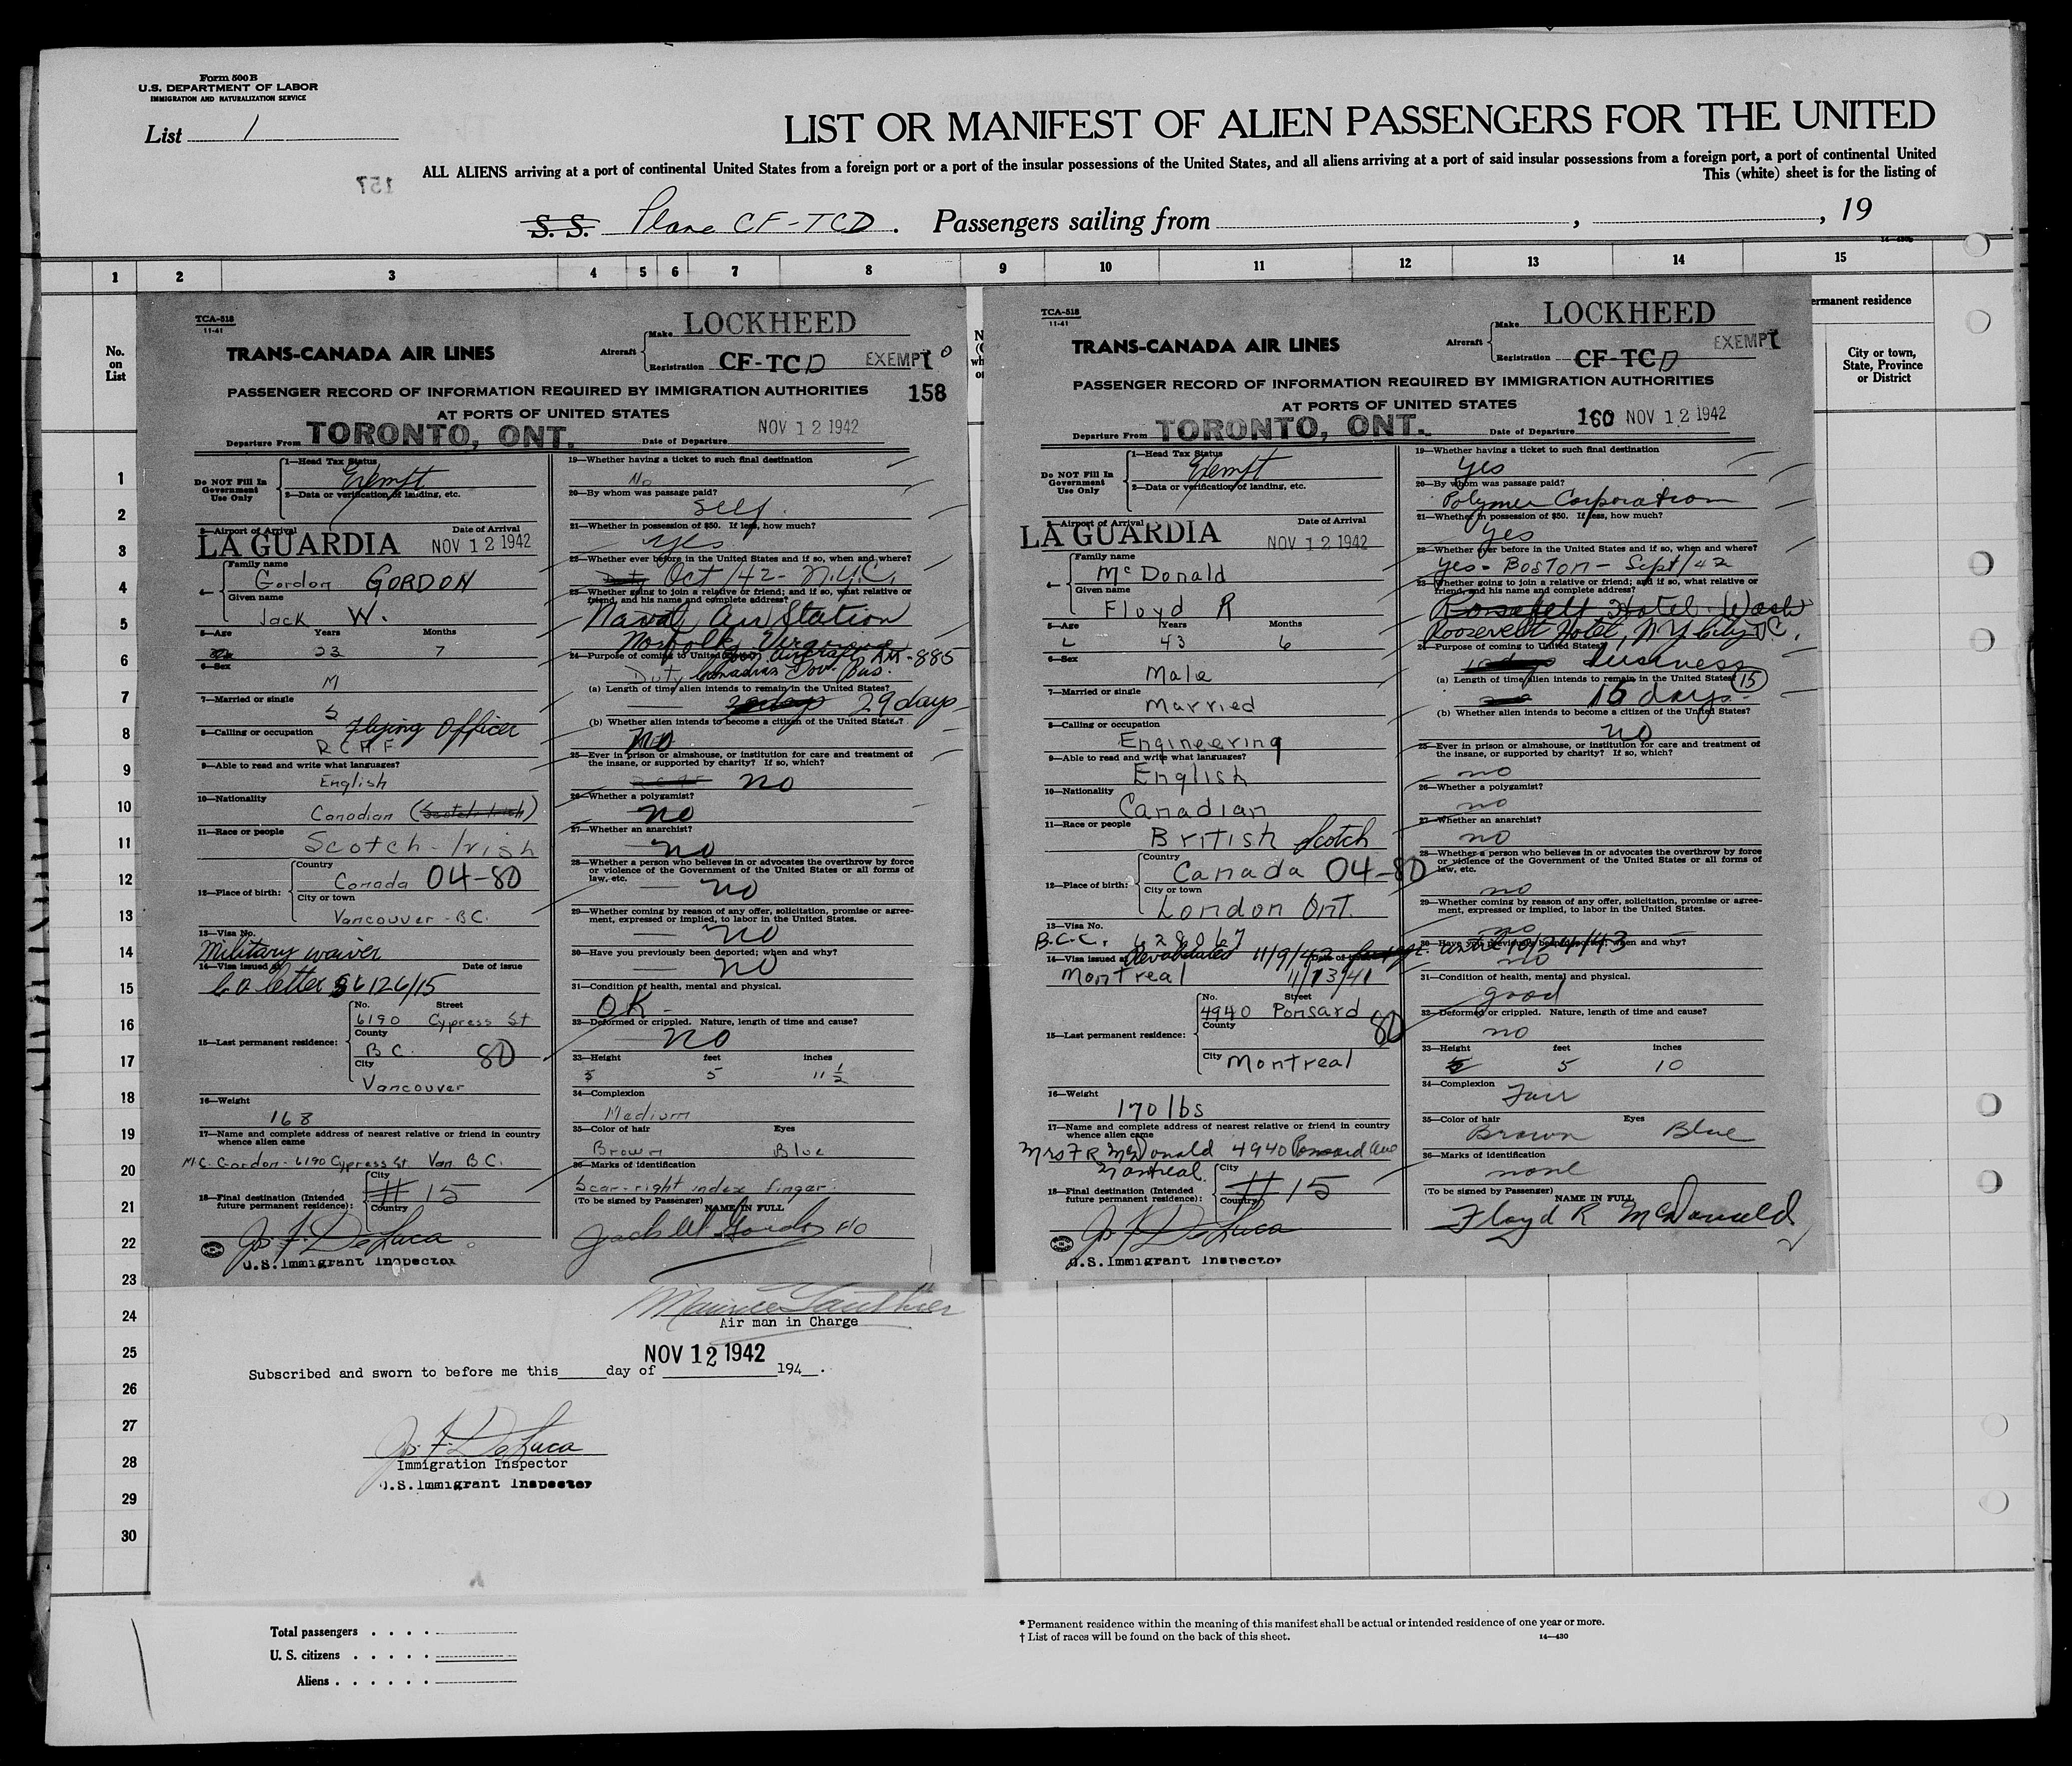 Form 500 B
U.S. DEPARTMENT OF LABOR
IMMIGRATION AND NATURALIZATION SERVICE
List 1
LIST OR MANIFEST OF ALIEN PASSENGERS FOR THE UNITED
ALL ALIENS arriving at a port of continental United States from a foreign port or a port of the insular possessions of the United States, and all aliens arriving at a port of said insular possessions from a foreign port, a port of continental United
This (white) sheet is for the listing of
157
S. S. Plane CF-TCD. Passengers sailing from , , 19
1 2 3 4 5 6 7 8 9 10 11 12 13 14 15
No. on List
ermanent residence
City or town, State, Province or District
1
2
3
4
5
6
7
8
9
10
11
12
13
14
15
16
17
18
19
20
21
22
23
24
25
26
27
28
29
30
TCA-518
11-41
TRANS-CANADA AIR LINES
Aircraft
Make LOCKHEED
Registration CF-TCD EXEMPT
PASSENGER RECORD OF INFORMATION REQUIRED BY IMMIGRATION AUTHORITIES 158
AT PORTS OF UNITED STATES
Departure From TORONTO, ONT. Date of Departure NOV 12 1942
Do NOT Fill In Government Use Only
1—Head Tax Status
Exempt
2—Data or verification of landing, etc.
3—Airport of Arrival Date of Arrival
LA GUARDIA NOV 12 1942
4— Family name
Gordon GORDON
Given name
Jack W.
5—Age Years Months
23 7
6—Sex
M
7—Married or single
S
8—Calling or occupation Flying Officer
RCAF
9—Able to read and write what languages?
English
10—Nationality
Canadian (Scotch-Irish)
11—Race or people
Scotch-Irish
12—Place of birth:
Country
Canada 04-80
City or town
Vancouver - B.C.
13—Visa No.
Military waiver
14—Visa issued at Date of issue
C.O. letter 56126/15
15—Last permanent residence:
No. Street
6190 Cypress St
County
B C. 80
City
Vancouver
16—Weight
168
17—Name and complete address of nearest relative or friend in country whence alien came
M.C. Gordon - 6190 Cypress St. Van B.C.
18—Final destination (Intended future permanent residence):
City
# 15
Country
Jos. F. DeLuca
U.S. Immigrant Inspector
19—Whether having a ticket to such final destination
No
20—By whom was passage paid?
Self.
21—Whether in possession of $50. If less, how much?
Yes
22—Whether ever before in the United States and if so, when and where?
Oct/42- N.Y.C.
23—Whether going to join a relative or friend; and if so, what relative or friend, and his name and complete address?
Naval Air Station
Norfolk, Virginia
24—Purpose of coming to United States
Duty Canadian Gov. Bus.
(a) Length of time alien intends to remain in the United States?
29 days
(b) Whether alien intends to become a citizen of the United States?
No
25—Ever in prison or almshouse, or institution for care and treatment of the insane, or supported by charity? If so, which?
RCAF no
26—Whether a polygamist?
no
27—Whether an anarchist?
no
28—Whether a person who believes in or advocates the overthrow by force or violence of the Government of the United States or all forms of law, etc.
no
29—Whether coming by reason of any offer, solicitation, promise or agreement, expressed or implied, to labor in the United States.
no
30—Have you previously been deported; when and why?
no
31—Condition of health, mental and physical.
OK -
32—Deformed or crippled. Nature, length of time and cause?
no
33—Height feet inches
5 5 11 1/2
34—Complexion
Medium
35—Color of hair Eyes
Brown Blue
36—Marks of identification
Scar - right index finger
(To be signed by Passenger)
NAME IN FULL
Jack W. Gordon F/O
Maurice Gauthier
Air man in Charge
NOV 12 1942
Subscribed and sworn to before me this day of 194 .
Jos. F. DeLuca
Immigration Inspector
U.S. Immigrant Inspector
TCA-518
11-41
TRANS-CANADA AIR LINES
Aircraft
Make LOCKHEED
Registration CF-TCD EXEMPT
PASSENGER RECORD OF INFORMATION REQUIRED BY IMMIGRATION AUTHORITIES
AT PORTS OF UNITED STATES
Departure From TORONTO, ONT. Date of Departure 160 NOV 12 1942
Do NOT Fill In Government Use Only
1—Head Tax Status
Exempt
2—Data or verification of landing, etc.
3—Airport of Arrival Date of Arrival
LA GUARDIA NOV 12 1942
4— Family name
McDonald
Given name
Floyd R
5—Age Years Months
43 6
6—Sex
Male
7—Married or single
Married
8—Calling or occupation
Engineering
9—Able to read and write what languages?
English
10—Nationality
Canadian
11—Race or people
British Scotch
12—Place of birth:
Country
Canada 04-80
City or town
London Ont.
13—Visa No.
B.C.C. 628067
14—Visa issued at Revalidated 11/9/42
Montreal 11/13/41
15—Last permanent residence:
No. Street
4940 Ponsard
County
80
City Montreal
16—Weight
170 lbs
17—Name and complete address of nearest relative or friend in country whence alien came
Mrs F R McDonald 4940 Ponsard Ave
Montreal
18—Final destination (Intended future permanent residence):
City
# 15
Country
Jos. F. DeLuca
U.S. Immigrant Inspector
19—Whether having a ticket to such final destination
Yes
20—By whom was passage paid?
Polymer Corporation
21—Whether in possession of $50. If less, how much?
Yes
22—Whether ever before in the United States and if so, when and where?
Yes - Boston - Sept/42
23—Whether going to join a relative or friend; and if so, what relative or friend, and his name and complete address?
Hotel Wash
Roosevelt Hotel, N Y City D.C.
24—Purpose of coming to United States?
business
(a) Length of time alien intends to remain in the United States 15
15 days
(b) Whether alien intends to become a citizen of the United States?
no
25—Ever in prison or almshouse, or institution for care and treatment of the insane, or supported by charity? If so, which?
no
26—Whether a polygamist?
no
27—Whether an anarchist?
no
28—Whether a person who believes in or advocates the overthrow by force or violence of the Government of the United States or all forms of law, etc.
no
29—Whether coming by reason of any offer, solicitation, promise or agreement, expressed or implied, to labor in the United States.
no
30—Have you previously been deported; when and why?
no
31—Condition of health, mental and physical.
good
32—Deformed or crippled. Nature, length of time and cause?
no
33—Height feet inches
5 10
34—Complexion
Fair
35—Color of hair Eyes
Brown Blue
36—Marks of identification
none
(To be signed by Passenger)
NAME IN FULL
Floyd R McDonald
Total passengers . . . .
U. S. citizens . . . . .
Aliens . . . . . .
* Permanent residence within the meaning of this manifest shall be actual or intended residence of one year or more.
† List of races will be found on the back of this sheet. 14—430